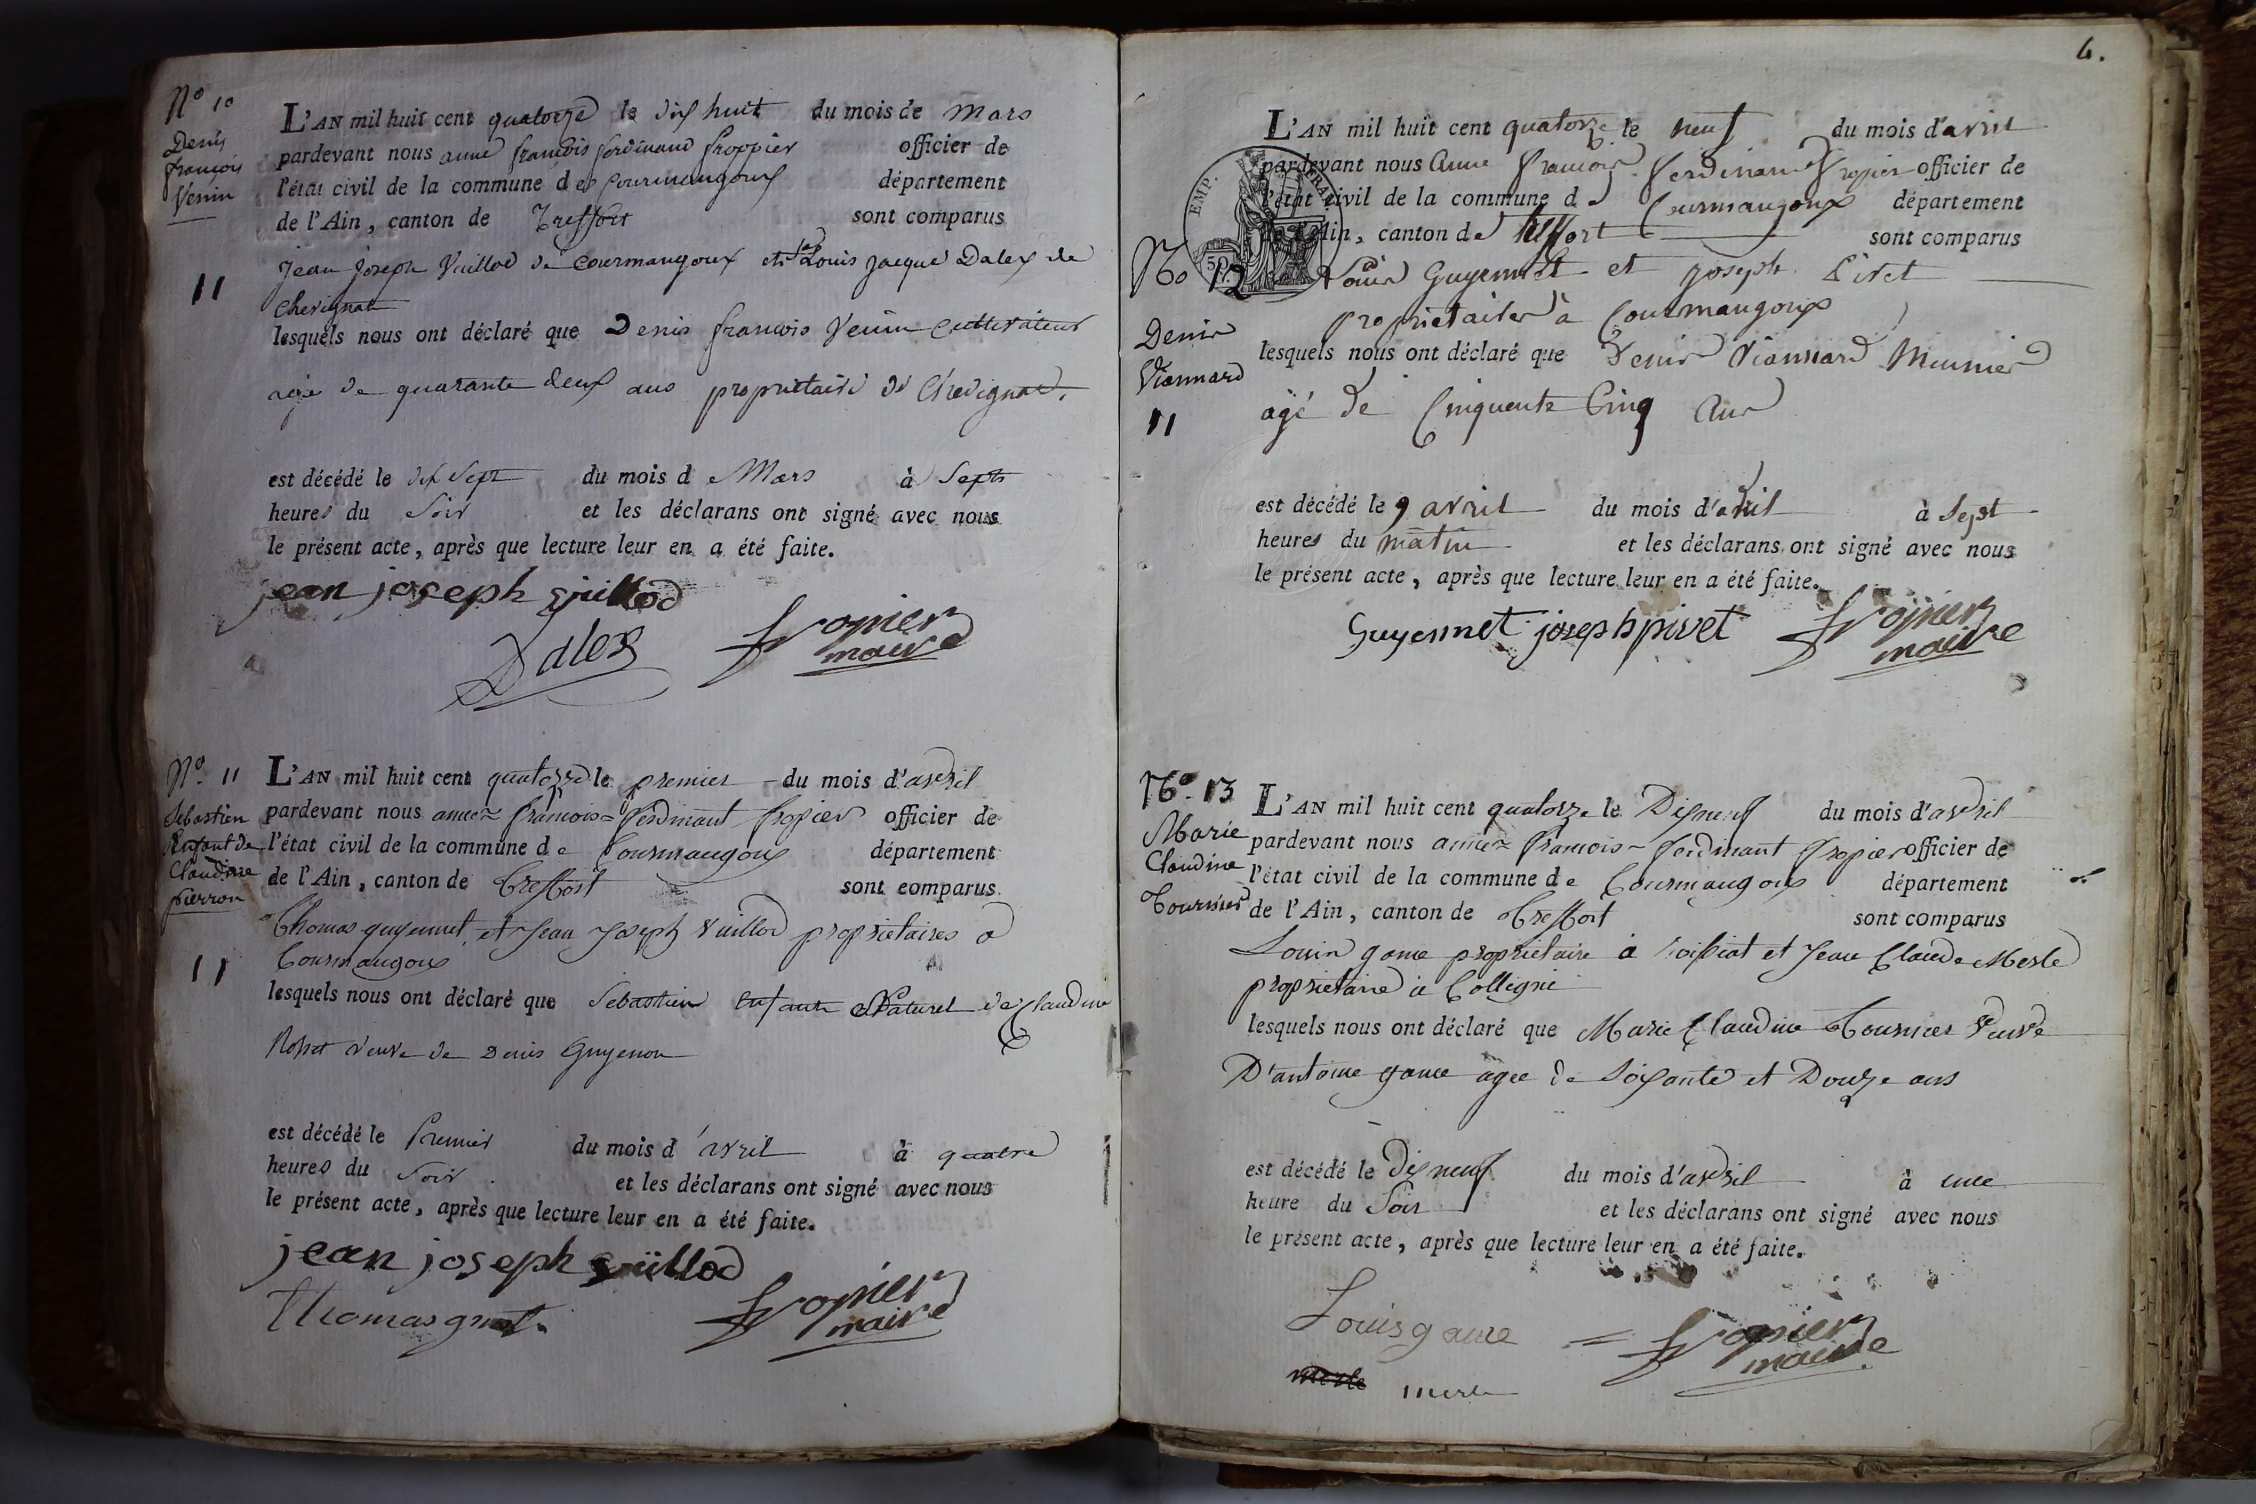 N.º 10
Denis
françois
Venin
11
L'AN mil huit cent quatorze le dix huit du mois de Mars
pardevant nous anne françois ferdinand froppier officier de
l'état civil de la commune de Courmangoux département
de l'Ain, canton de Treffort sont comparus
Jean Joseph Vuillod de Courmangoux et Louis Jacque Dalex de
Chevignat
lesquels nous ont déclaré que Denis françois Venin Cultivateur
agé de quarante deux ans propriétaire de Chevignat.
est décédé le dix Sept du mois de Mars à Sept
heures du Soir et les déclarans ont signé avec nous
le présent acte, après que lecture leur en a été faite.
jean joseph vuillod
Dalex
fropier
maire
N.º 11
Sébastien
Enfant de
Claudine
pierron
11
L'AN mil huit cent quatorze le premier du mois d'avril
pardevant nous anne françois ferdinant fropier officier de
l'état civil de la commune de Courmangoux département
de l'Ain, canton de Treffort sont comparus
Thomas guyennet, et Jean Joseph Vuillod propriétaires a
Courmangoux
lesquels nous ont déclaré que Sebastien Enfant Naturel de Claudine
veuve de Denis Guyenon
est décédé le Premier du mois d'avril à quatre
heures du Soir et les déclarans ont signé avec nous
le présent acte, après que lecture leur en a été faite.
jean joseph vuillod
Thomas
fropier
maire
EMP. FRA
50
No 12
Denis
Vionnard
11
L'AN mil huit cent quatorze le neuf du mois d'avril
pardevant nous Anne françois ferdinand fropier officier de
l'état civil de la commune de Courmangoux département
de l'Ain, canton de treffort sont comparus
Louis Guyennet et Joseph Pivet
propriétaires à Courmangoux
lesquels nous ont déclaré que Denis Vionnard Meunier
agé de Cinquente Cinq Ans
est décédé le 9 avril du mois d'avril à Sept
heures du matin et les déclarans ont signé avec nous
le présent acte, après que lecture leur en a été faite.
Guyennet joseph pivet
fropier
maire
Nº. 13
Marie
Claudine
Tournier
L'AN mil huit cent quatorze le Disneuf du mois d'avril
pardevant nous anne françois ferdinant fropier officier de
l'état civil de la commune de Courmangoux département
de l'Ain, canton de Treffort sont comparus
Louis game propriétaire à roissiat et Jean Claude Merle
propriétaire à Colligni
lesquels nous ont déclaré que Marie Claudine Tournier Veuve
D'antoine game agee de Soixante et Douze ans
est décédé le Disneuf du mois d'avril à une
heure du Soir et les déclarans ont signé avec nous
le présent acte, après que lecture leur en a été faite.
Louis game
fropier
maire
merle merle